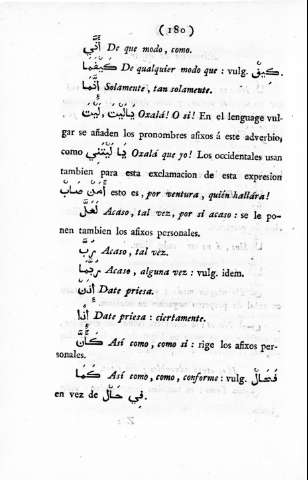 ( 180 )
أَنَّي De que modo, como.
كَيْفَمَا De qualquier modo que : vulg. كِيفْ.
إِنَّمَا Solamente, tan solamente.
يَالَيْتَ, لَيْتَ Oxalá! O si! En el lenguage vul-
gar se añaden los pronombres afixos á este adverbio,
como يَا لَيْتَنِي Oxalá que yo! Los occidentales usan
tambien para esta exclamacion de esta expresion
أَمَنْ صَابْ esto es, por ventura, quién hallára!
لَعَلَّ Acaso, tal vez, por si acaso : se le po-
nen tambien los afixos personales.
رُبَّ Acaso, tal vez.
رُبَّمَا Acaso, alguna vez : vulg. idem.
إِذَنْ Date priesa.
إِذًا Date priesa : ciertamente.
كَأَنَّ Así como, como si : rige los afixos per-
sonales.
كَمَا Así como, como, conforme : vulg. فَحَالْ
en vez de فِي حَالْ.